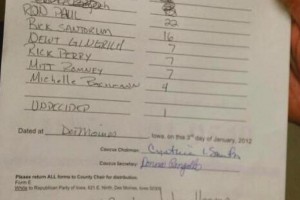 RON PAUL 22
RICK SANTORUM 16
NEWT GINGRICH 7
RICK PERRY 7
MITT ROMNEY 7
Michelle Bachmann 4
UNDECIDED 1
Dated at DesMoines Iowa, on the 3rd day of January, 2012
Caucus Chairman:
Caucus Secretary:
Please return ALL items to County Chair for distribution.
Form E
White to Republican Party of Iowa, 621 E. Ninth, Des Moines, Iowa 50309